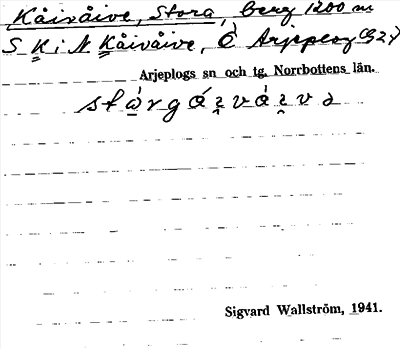 Kåivåive, Stora, berg 1200 m
S K i N Kåivåive, Ö Arjeplog
Arjeplogs sn och tg. Norrbottens län.
Sigvard Wallström, 1941.